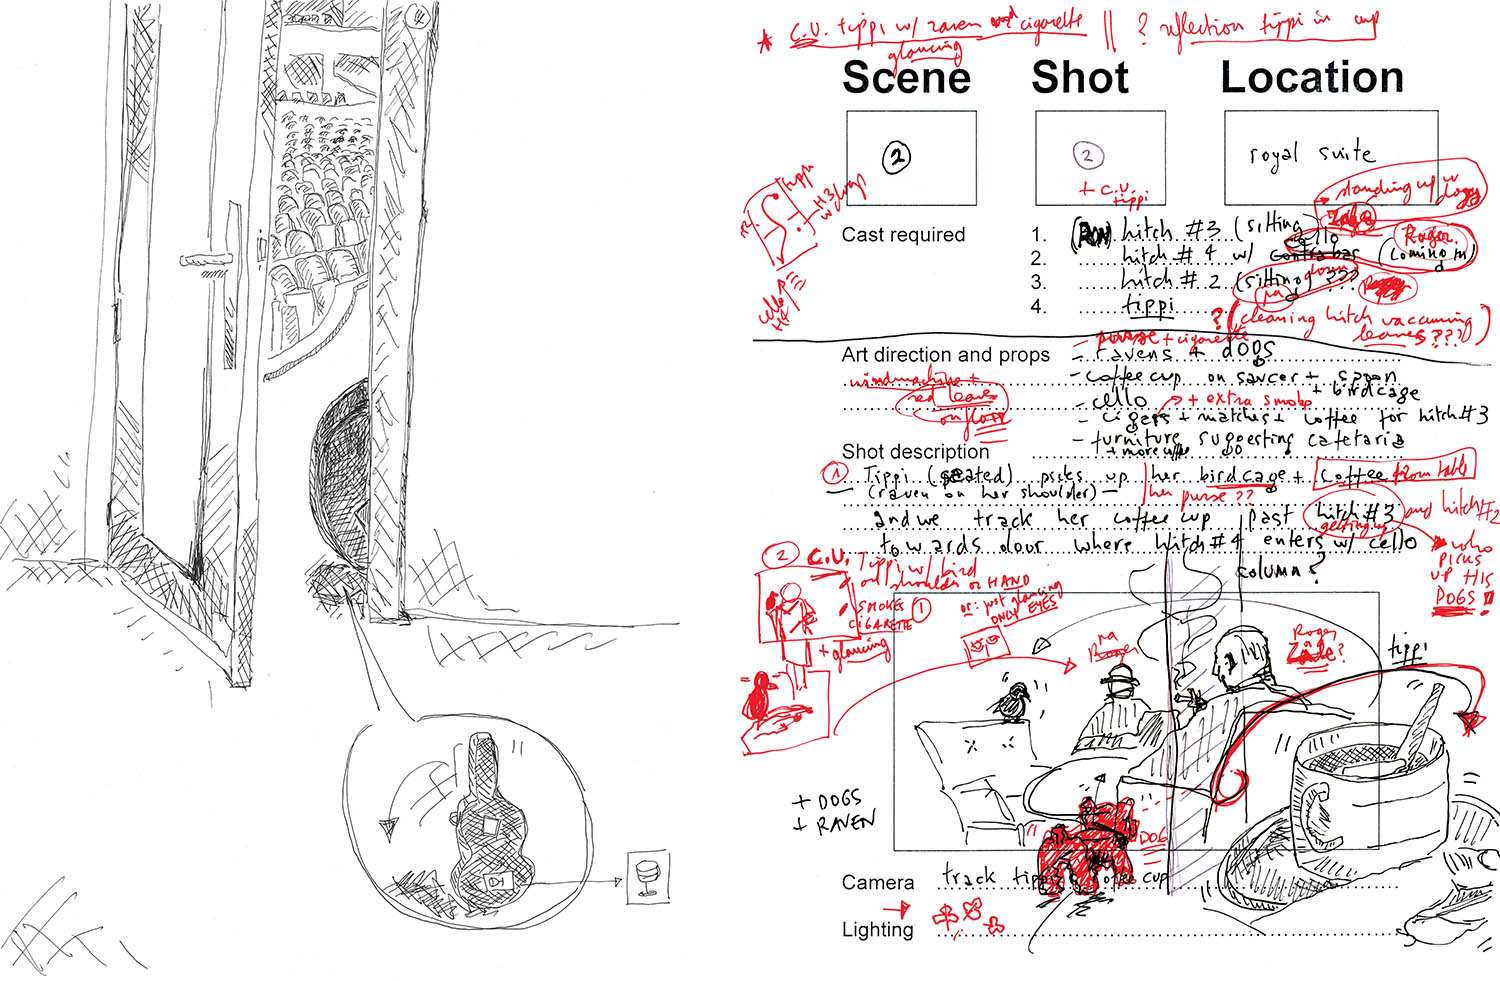 4
* C.U. tippi w/ raven and cigarette || ? reflection tippi in cup
glancing
Scene Shot Location
2 2 royal suite
+ C.U.
tippi
tippi
H3
w/ dogs
cello
H4
standing up w/ dogs
Cast required
1. hitch #3 (sitting
2. hitch #4 w/ contrabas (coming in)
cello
Roger
3. hitch #2 (sitting) ???
4. tippi
? (cleaning hitch vacuuming
leaves ???)
Art direction and props
- purse + cigarette
- ravens + dogs
- coffee cup on saucer + spoon
+ birdcage
windmachine +
red leaves
on floor
- cello
+ extra smoke
- cigars + matches + coffee for hitch #3
- furniture suggesting cafetaria
Shot description
+ more coffee
1 Tippi (seated) picks up her birdcage + coffee from table
- (raven on her shoulder) -
her purse ??
and we track her coffee cup past hitch #3 and hitch #2
getting up
towards door where hitch #4 enters w/ cello
who
picks
up his
DOGS !
column?
2 C.U. Tippi w/ bird
on shoulder or HAND
SMOKES
CIGARETTE
+ glancing
or: just glancing
ONLY EYES
1
ra
Roger
Zade?
tippi
+ DOGS
+ RAVEN
DOG
Camera track tippi's coffee cup
Lighting